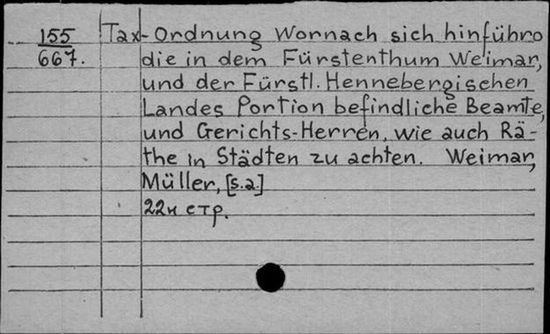 155 Tax-Ordnung Wornach sich hinführo
667. die in dem Fürstenthum Weimar,
und der Fürstl. Hennebergischen
Landes Portion befindliche Beamte,
und Gerichts-Herren, wie auch Rä-
the in Städten zu achten. Weimar,
Müller, [s.a.]
22н стр.